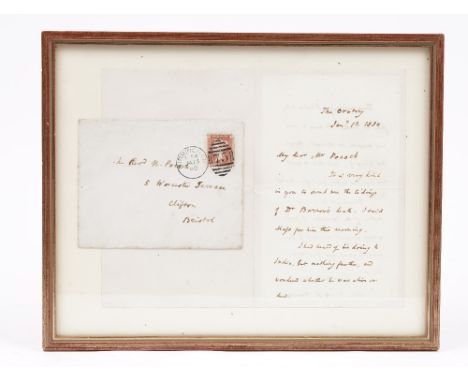 The Revd N. Pocock
5 Worcester Terrace
Clifton
Bristol
The Oratory
Jany 12. 1880
My dear Mr Pocock
It is very kind
in you to send me the tidings
of Dr Barrow's death. I said
Mass for him this morning.
I had heard of his going to
India, but nothing further, and
wondered whether he was alive or
dead.